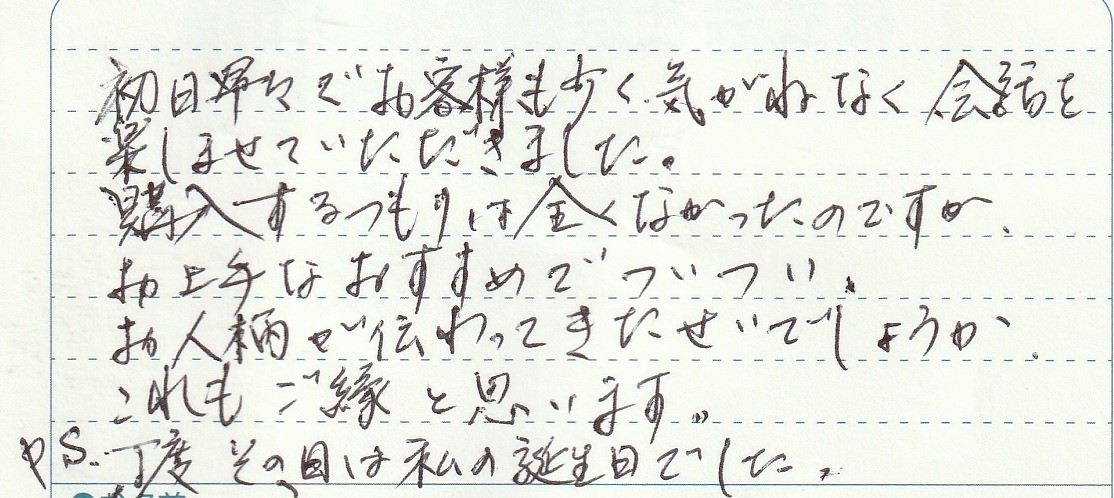 初日早々でお客様も少く気がねなく会話を
楽しませていただきました。
購入するつもりは全くなかったのですが、
お上手なおすすめでついつい、
お人柄が伝わってきたせいでしょうか、
これもご縁と思います。
P.S. 丁度その日は私の誕生日でした。